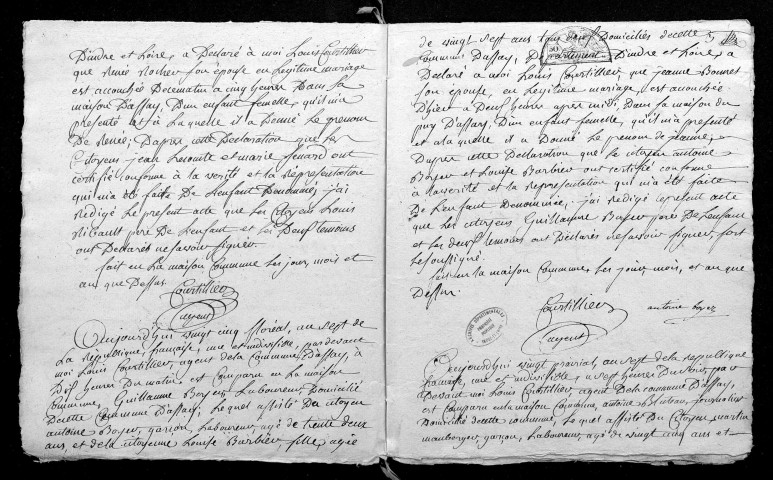 Dindre et Loire, a Declaré à moi Louis Courtillier
que Renée Rocher son épouse en Legitime mariage
est accouchée De ce matin a cinq heures Dans Sa
maison Dassay, D'un enfant femelle, qu'il m'a
presenté et à La quelle il a Donné Le prenom
De Renée; Dapres cette Declaration que les
Citoyens jean Lecomte et marie
certifié conforme a la verité et la Representation
qui m'a été faite De L'enfant Denommée; j'ai
Redigé Le present acte que Les Citoyens Louis
Ribault pere De L'enfant et Les Deux temoins
ont Declarés ne savoir signer.
fait en La maison Commune Les jour, mois et
an que Dessus.
Courtillier
agent
Aujourd'hui vingt cinq floréal, an sept de
La republique, française, une et indivisible, par devant
moi Louis Courtillier, agent de la Commune Dassay, à
Dix heures Du matin, est Comparu en La maison
Commune, Guillaume Boyer, Laboureur, Domicilié
Decette Commune Dassay; Lequel assisté Du citoyen
antoine Boyer, garson, Laboureur, agé de trente deux
ans, et de la citoyenne Louise Barbier, fille, agée
de vingt sept ans tous deux Domiciliés decette
Commune Dassay, Departement Dindre et Loire, a
Declaré a moi Louis Courtillier, que jeanne Bonnet
son épouse, en Legitime mariage, est accouchée
D'hier a Deux heures apres midi, Dans sa maison du
puy Dassay, D'un enfant femelle, qu'il m'a presenté
et a la quelle il a Donné Le prenom de jeanne,
Dapres cette Declaration que le citoyen antoine
Boyer et Louise Barbier ont certifié conforme
a la verité et la Representation qui m'a été faite
De L'enfant Denommée; j'ai redigé le present acte
que Les citoyens Guillaume Boyer pere De L'enfant
et les deux temoins ont Déclarés ne savoir signer, fort
Le soussigné.
fait en la maison Commune, Les jour, mois, et an que
Dessus.
Courtillier antoine boyer
agent
Aujourd'hui vingt prairial, an sept de la republique
française, une et indivisible, a sept heures Du soir, par
Devant moi Louis Courtillier, agent De la commune Dassay,
est Comparu en la maison Commune, antoine, journalier
Domicilié decette commune, Le quel assisté Du Citoyen martin
mauberger, garson, Laboureur, agé de vingt cinq ans et